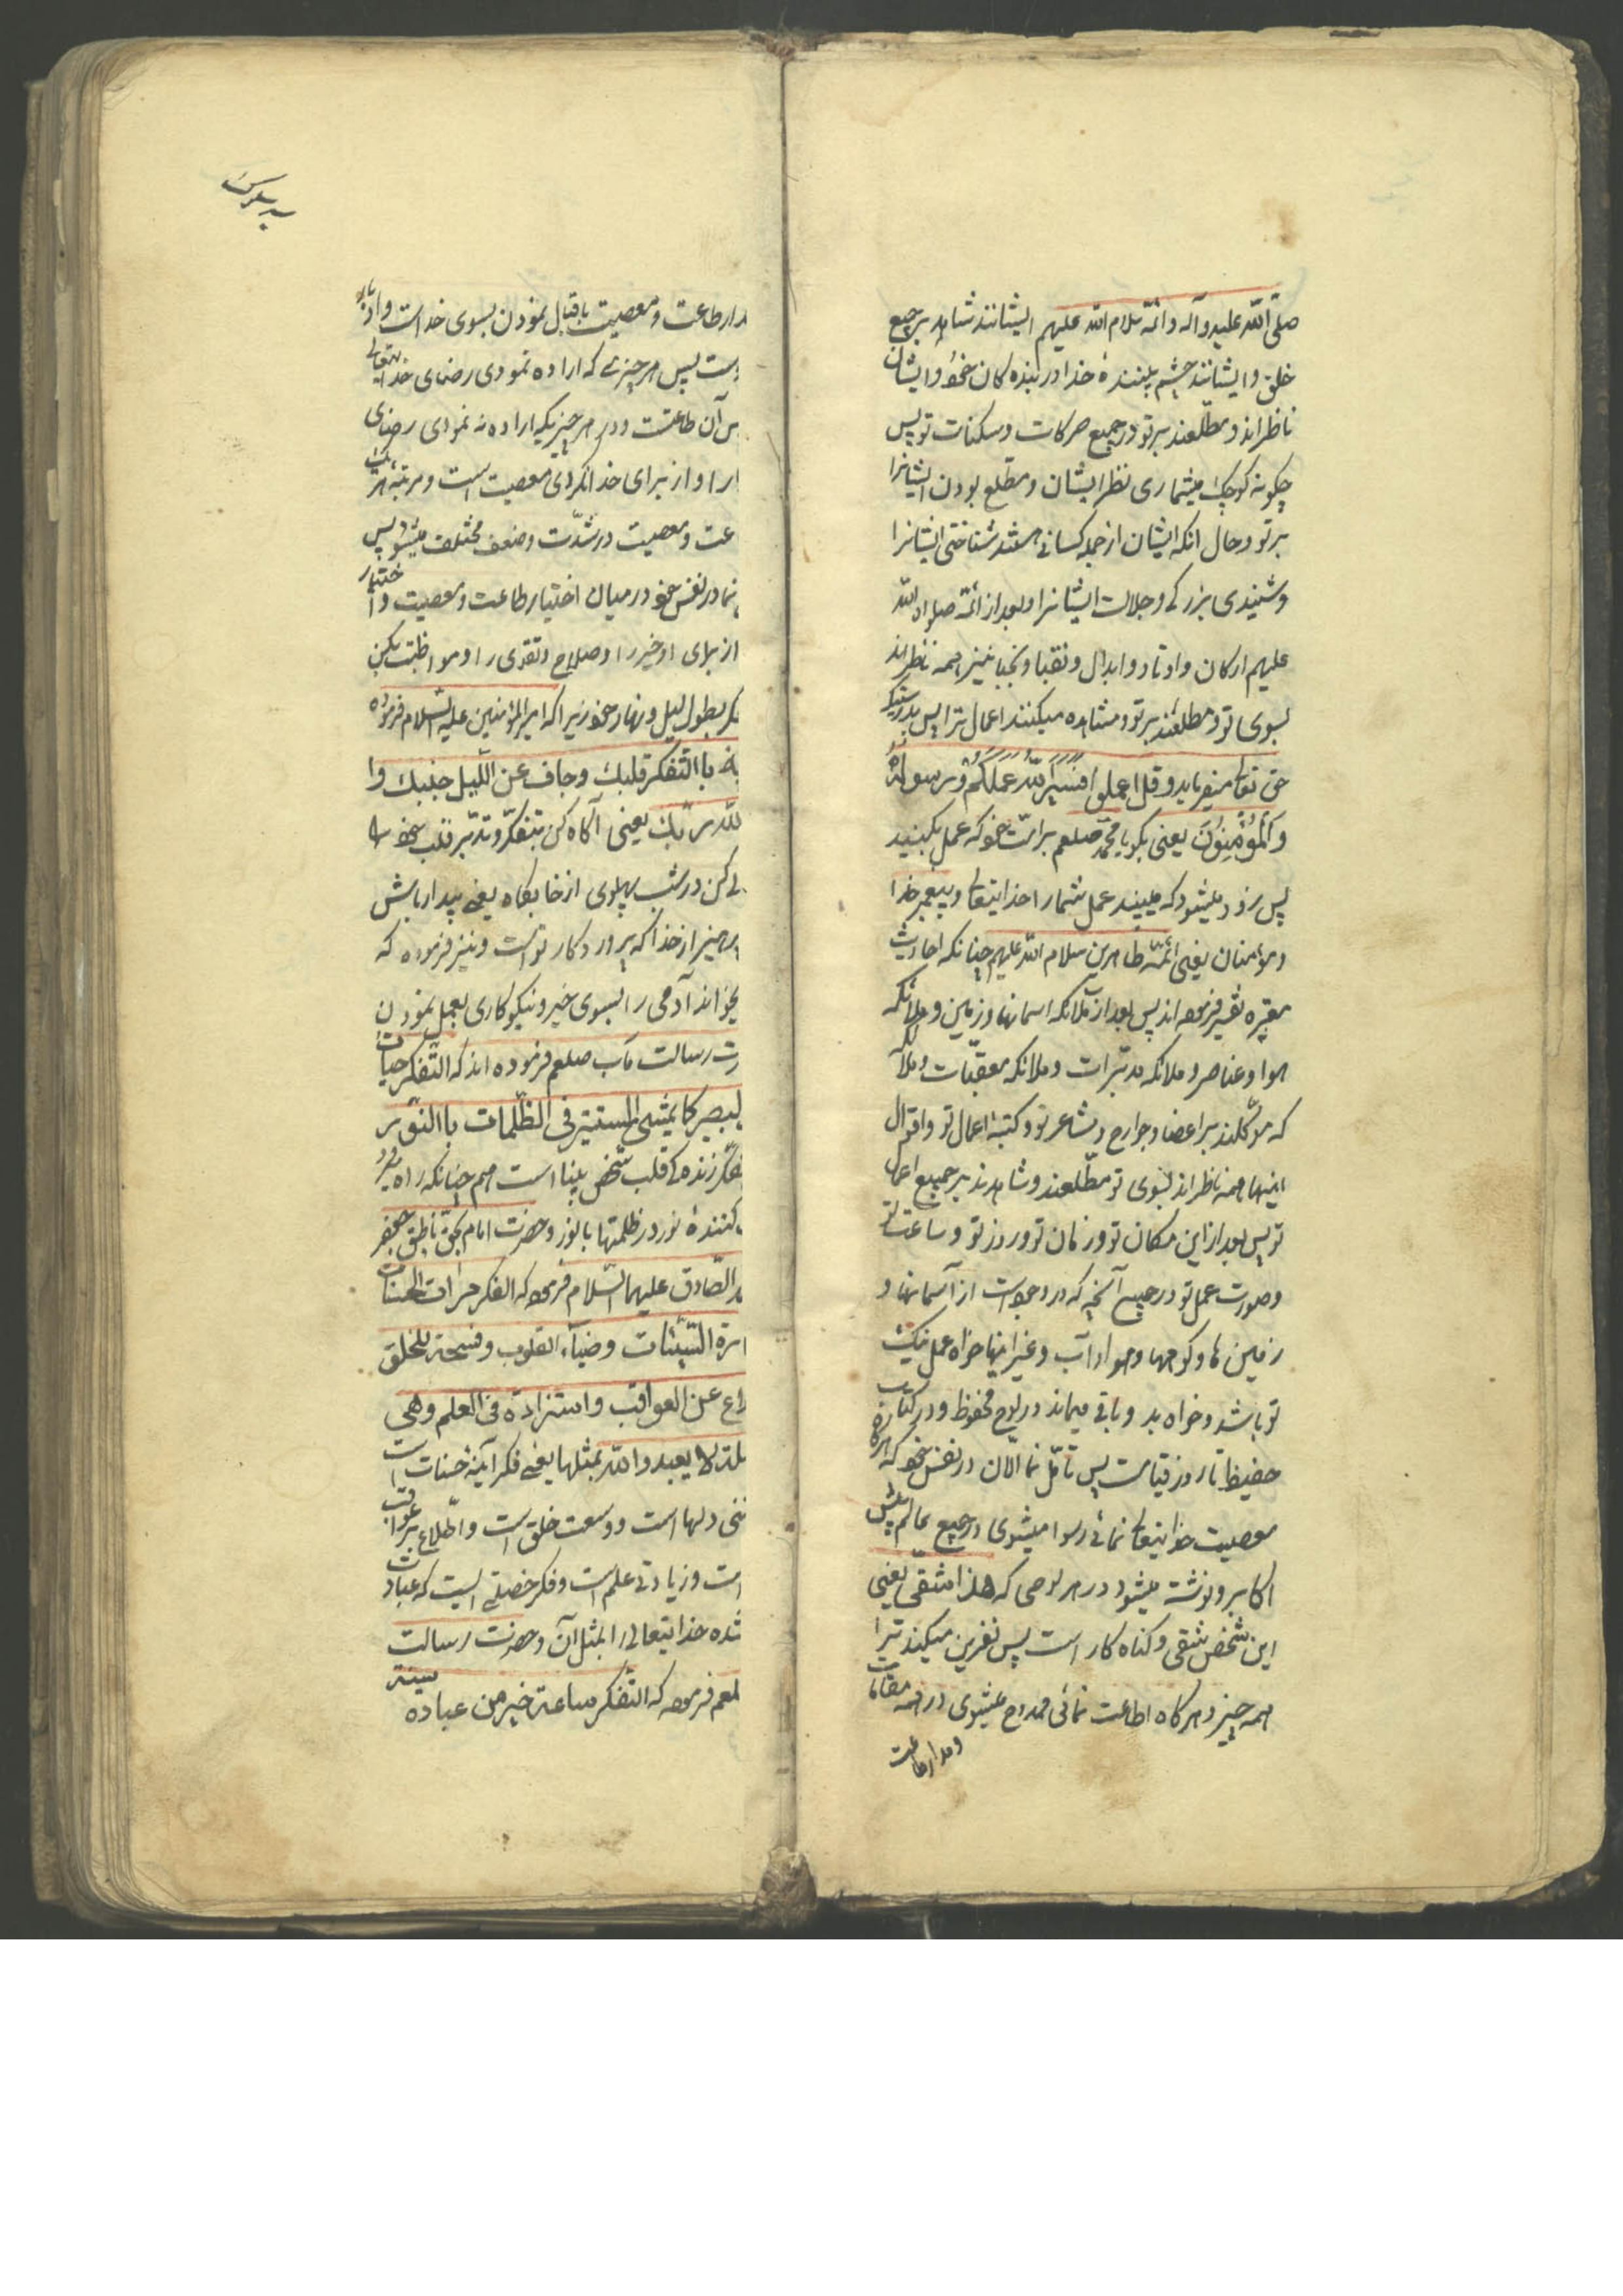 صلّی اللّه علیه وآله وائمّه سلام اللّه علیهم ایشانند شاهد بر جمیع
خلق وایشانند چشم بینندهٔ خدا در بنده کان خود وایشان
ناظراند ومطّلعند بر تو در جمیع حرکات وسکنات تو پس
چکونه کوچک میشماری نظر ایشان ومطّلع بودن ایشانرا
بر تو وحال انکه ایشان از جمله کسانی هستند شناختی ایشانرا
وشنیدی بزرکی وجلالت ایشانرا وبعد از ائمّه صلوات اللّه
علیهم ارکان واوتاد وابدال ونقبا ونجبا نیز همه ناظراند
بسوی تو ومطلعند بر تو ومشاهده میکنند اعمال ترا پس بدرستیکه
حق تعالی میفرماید وقل اعملوا فَسَیَرَی اللّهُ عَمَلَکُم وَرَسولُهُ
وَالمُؤمِنونَ یعنی بکو یا محمّد صلعم بر امّت خود که عمل بکنید
پس زود میشود که میبیند عمل شما را خدایتعالی وپیغمبر خدا
ومؤمنان یعنی ائمّه طاهرین سلام اللّه علیهم چنانکه احادیث
معتبره تفسیر فرموده اند پس بعد از ملائکه اسمانها وزمین وملائکه
هوا وعناصر وملائکه مدبّرات وملائکه معقّبات وملائکه
که موکّلند بر اعضا وجوارح ومشاعر تو وکتبهٔ اعمال تو واقوال
اینها همه ناظراند بسوی تو مطّلعند وشاهدند بر جمیع اعمال
تو پس بعد از این مکان تو وزمان تو وروز تو وساعت تو
وصورت عمل تو در جمیع آنچه که در وجود است از آسمانها و
زمین ها وکوهها وهوا وآب وغیر اینها خواه عمل نیک
تو باشد وخواه بد وباقی میماند در لوح محفوظ ودر کتاب
حفیظ تا روز قیامت پس تأمّل نما الآن در نفس خود که هرکاه
معصیت خدایتعالی نمائی رسوا میشوی در جمیع عالم پیش
اکابر ونوشته میشود در هر لوحی که هذا شقیّ یعنی
این شخص شقی وکناه کار است پس نفرین میکند ترا
همه چیز وهرکاه اطاعت نمائی ممدوح میشوی در همه مقامات
ومدار طاعت
مدار طاعت ومعصیت باقبال نمودن بسوی خداست وادبار
ست پس هر چیزی که اراده نمودی رضای خدایتعالی
آن طاعتست ودر هر چیزیکه اراده نه نمودی رضای
را واز برای خدا نکردی معصیت است ومرتبه هر یک
عت ومعصیت در شدّت وضعف مختلف میشود پس
نما در نفس خود در میان اختیار طاعت ومعصیت واختیار
از برای او خیر را وصلاح وتقوی را ومواظبت بکن
بطول لیل ونهار خود زیرا که امیر المؤمنین علیه السّلام فرموده
باالتّفکر قلبک وجاف عن اللّیل جنبک وا
للّه ربّک یعنی آکاه کن بتفکّر وتدبّر قلب خود را
کن در شب پهلوی از خابکاه یعنی بیدار باش
پرهیز از خدا که پرورد کار تو است ونیز فرموده که
بخواند آدمی را بسوی خیر ونیکو کاری بعمل نمودن
رت رسالت مآب صلعم فرموده اند که التّفکر حیات
لبصیر کما یمشی المستنیر فی الظّلمات باالنّور
زنده کی قلب شخص بینا است هم چنانکه راه میرود
کنندهٔ نور در ظلمتها با نور وحضرت امام بحقّ ناطق جعفر
الصّادق علیهما السّلام فرموده که الفکر مرآت الحسنات
ارة السّیّئات وضیاء القلوب وفسحة للخلق
عن العواقب واستزادة فی العلم وهی
لا یعبدو اللّه بمثلها یعنی فکر آینهٔ حسنات است
نی دلها است ووسعت خلق است واطّلاع بر عواقب
است وزیادتی علم است وفکر خصلتی است که عبادت
شده خدایتعالی را بمثل آن وحضرت رسالت
لعم فرموده که التّفکر ساعة خیر من عباده سنة